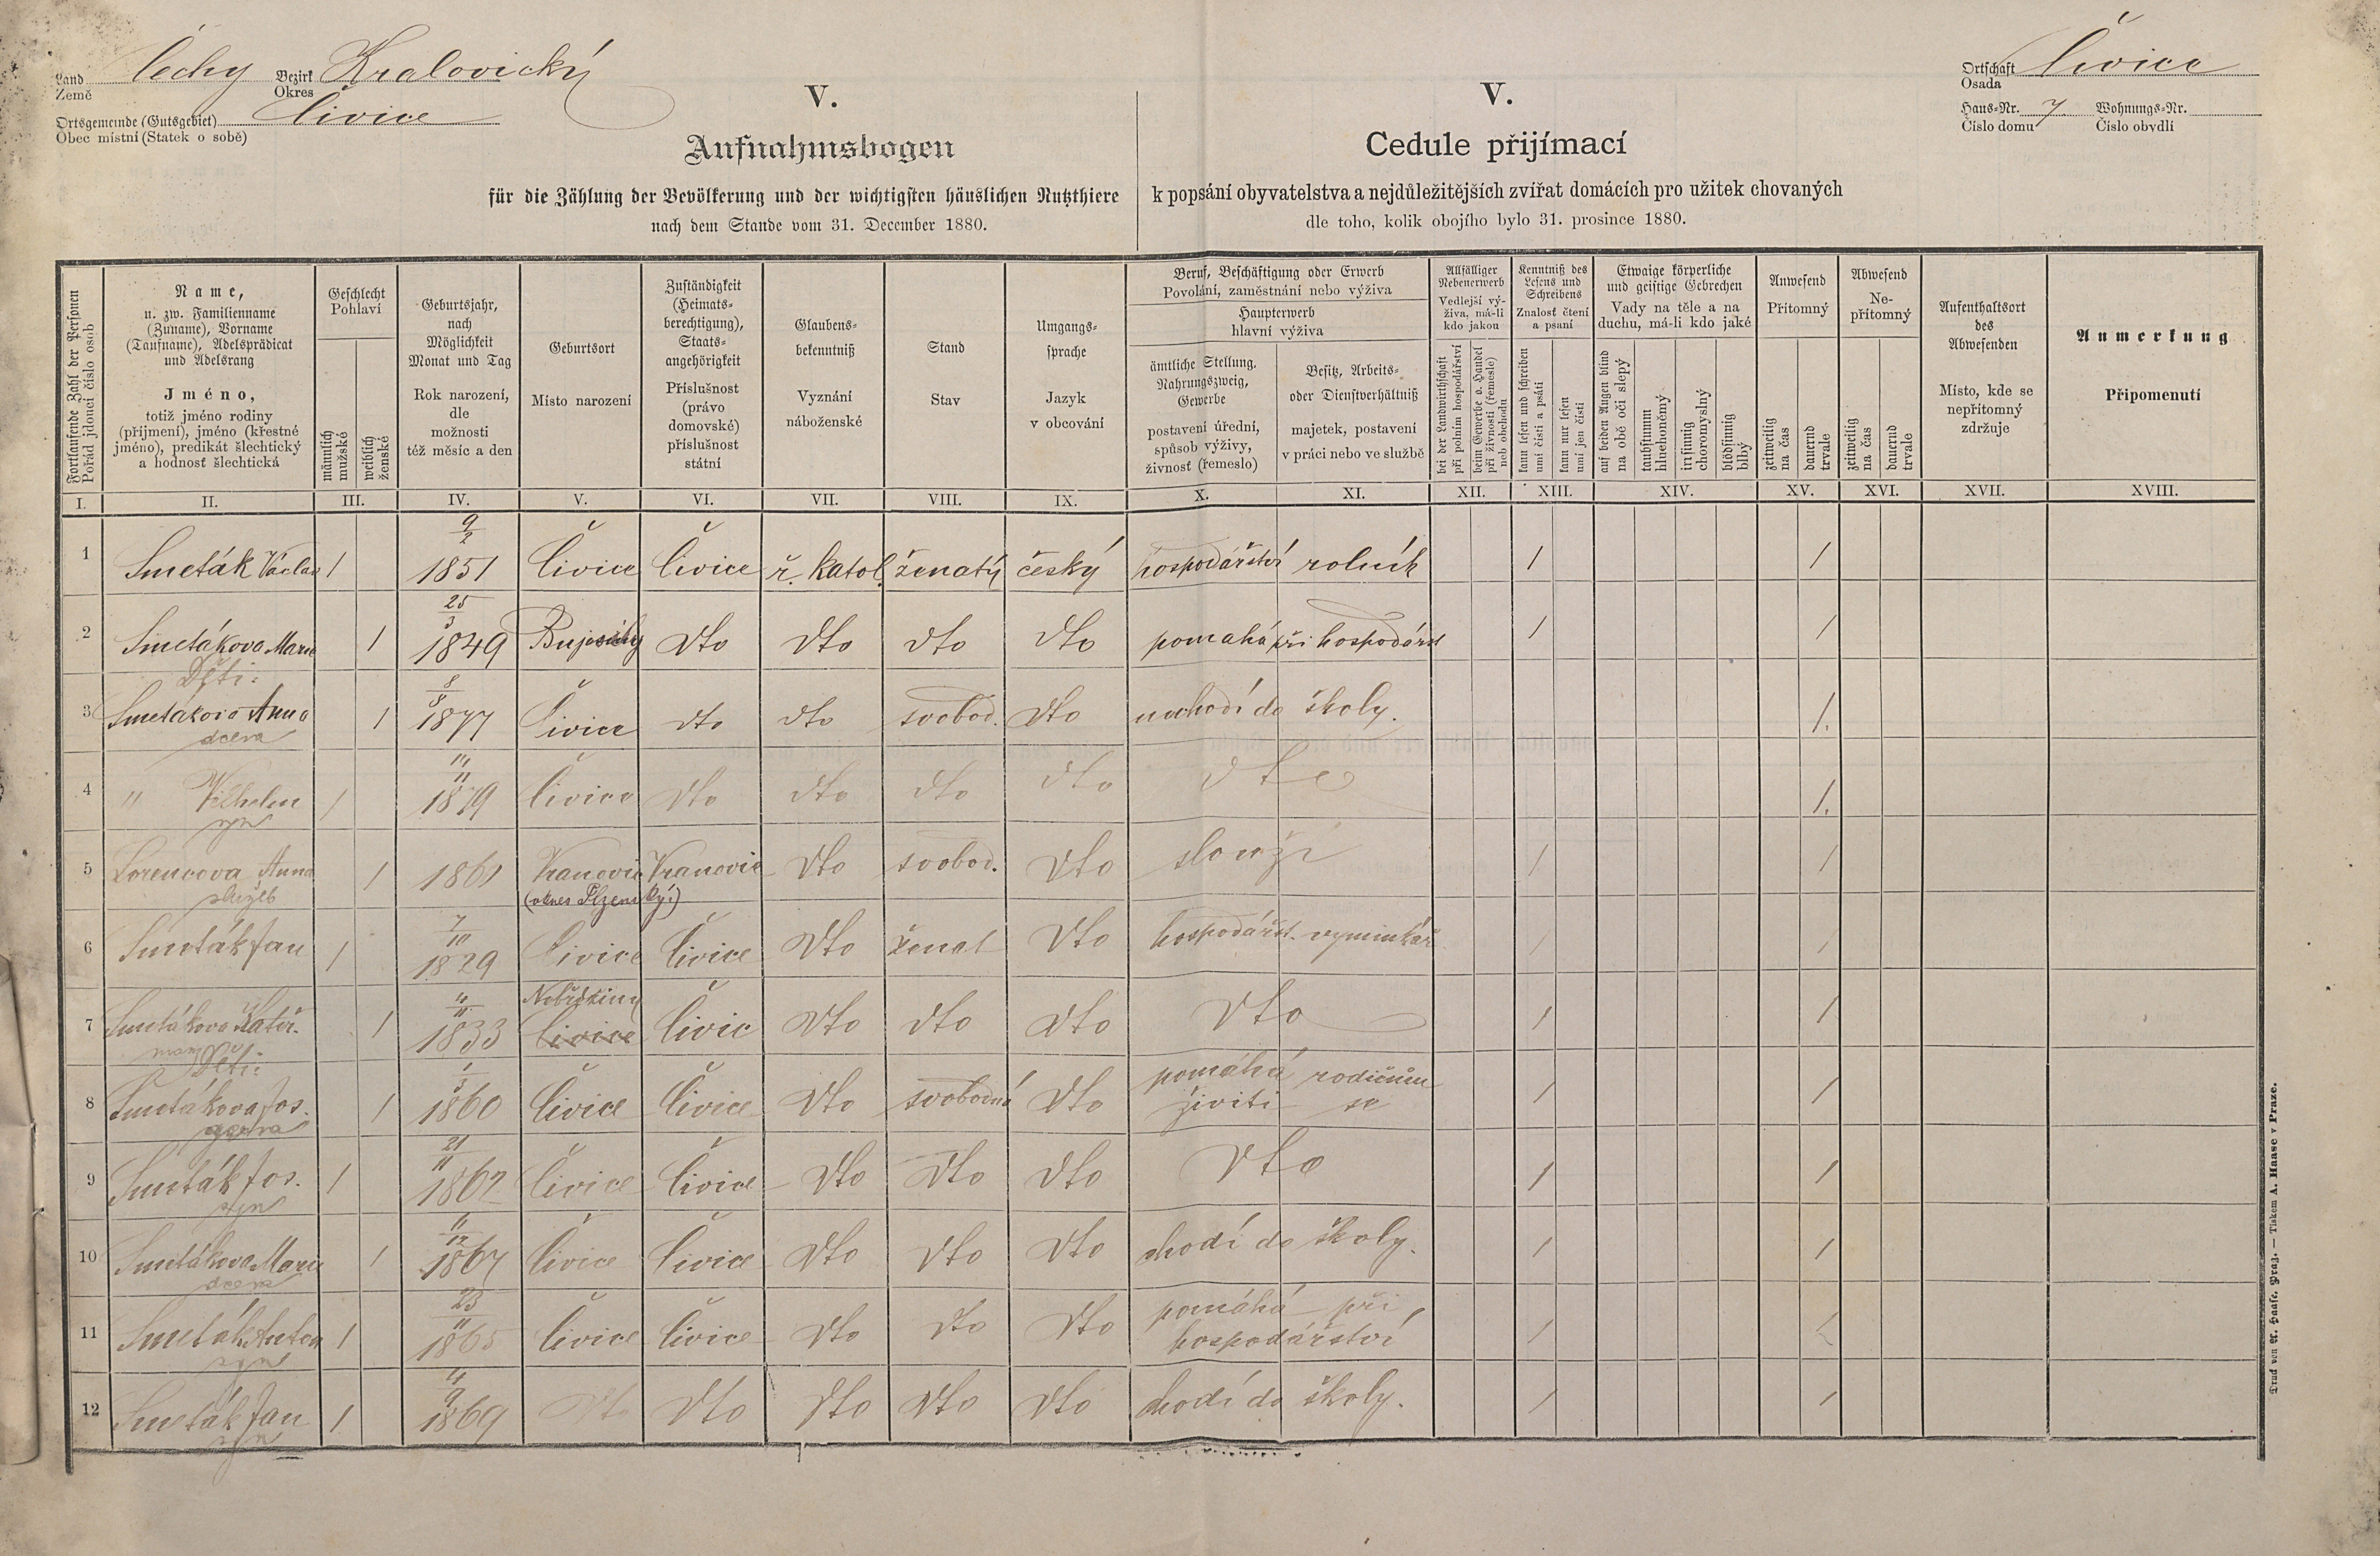 Land Země Čechy Bezirk Okres Kralovický
Ortsgemeinde (Gutsgebiet) Obec místní (Statek o sobě) Čivice
Ortschaft Osada Čivice
Haus-Nr. Číslo domu 7. Wohnungs-Nr. Číslo obydlí
V.
Aufnahmsbogen
für die Zählung der Bevölkerung und der wichtigsten häuslichen Nutzthiere
nach dem Stande vom 31. December 1880.
V.
Cedule přijímací
k popsání obyvatelstva a nejdůležitějších zvířat domácích pro užitek chovaných
dle toho, kolik obojího bylo 31. prosince 1880.
Fortlaufende Zahl der Personen
Pořád jdoucí číslo osob
Name,
u. zw. Familienname
(Zuname), Vorname
(Taufname), Adelsprädicat
und Adelsrang
Jméno,
totiž jméno rodiny
(příjmení), jméno (křestné
jméno), predikát šlechtický
a hodnosť šlechtická
Geschlecht
Pohlaví
männlich
mužské
weiblich
ženské
Geburtsjahr,
nach
Möglichkeit
Monat und Tag
Rok narození,
dle
možnosti
též měsíc a den
Geburtsort
Místo narození
Zuständigkeit
(Heimats-
berechtigung),
Staats-
angehörigkeit
Příslušnost
(právo
domovské)
příslušnost
státní
Glaubens-
bekenntniß
Vyznání
náboženské
Stand
Stav
Umgangs-
sprache
Jazyk
v obcování
Beruf, Beschäftigung oder Erwerb
Povolání, zaměstnání nebo výživa
Haupterwerb
hlavní výživa
ämtliche Stellung,
Nahrungszweig,
Gewerbe
postavení úřední,
spůsob výživy,
živnosť (řemeslo)
Besitz, Arbeits-
oder Dienstverhältniß
majetek, postavení
v práci nebo ve službě
Allfälliger
Nebenerwerb
Vedlejší vý-
živa, má-li
kdo jakou
bei der Landwirthschaft
při polním hospodářství
beim Gewerbe o. Handel
při živnosti (řemesle)
neb obchodu
Kenntniß des
Lesens und
Schreibens
Znalosť čtení
a psaní
kann lesen und schreiben
umí čísti a psáti
kann nur lesen
umí jen čísti
Etwaige körperliche
und geistige Gebrechen
Vady na těle a na
duchu, má-li kdo jaké
auf beiden Augen blind
na obě oči slepý
taubstumm
hluchoněmý
irrsinnig
choromyslný
blödsinnig
blbý
Anwesend
Přítomný
zeitweilig
na čas
dauernd
trvale
Abwesend
Ne-
přítomný
zeitweilig
na čas
dauernd
trvale
Aufenthaltsort
des
Abwesenden
Místo, kde se
nepřítomný
zdržuje
Anmerkung
Připomenutí
I. II. III. IV. V. VI. VII. VIII. IX. X. XI. XII. XIII. XIV. XV. XVI. XVII. XVIII.
9/2
1 Smeták Václav 1 1851 Čivice Čivice ř. katol. ženatý český hospodářství rolník 1 1
25/3
2 Smetákova Marie 1 1849 dto dto dto dto pomahá při hospodářst 1 1
Děti:
8/8
3 Smetákova Anna 1 1877 Čivice dto dto svobod. dto nechodí do školy. 1.
dcera
4 " Vilhelm 1 1879 Čivice dto dto dto dto dto 1.
syn
5 Lorencova Anna 1 1861 dto svobod. dto slouží 1 1
služeb (okres Plzenský)
7/10
6 Smeták Jan 1 1829 Čivice Čivice dto ženat dto hospodářst. vyminkář 1 1
7 Smetákova Kateř. 1 1833 Čivice Čivic dto dto dto dto 1 1
manželka
Děti:
1/3
8 Smetákova Jos. 1 1860 Čivice Čivice dto svobodná dto pomáhá rodičům živiti se 1 1
dcera
21/11
9 Smeták Jos. 1 1862 Čivice Čivice dto dto dto dto 1 1
syn
10 Smetákova Marie 1 1867 Čivice Čivice dto dto dto chodí do školy. 1 1
dcera
23/11
11 Smeták Anton 1 1865 Čivice Čivice dto dto dto pomáhá při hospodářství 1 1
syn
12 Smeták Jan 1 1869 dto dto dto dto dto chodí do školy. 1 1
syn
Druck von A. Haase, Prag. — Tiskem A. Haase v Praze.